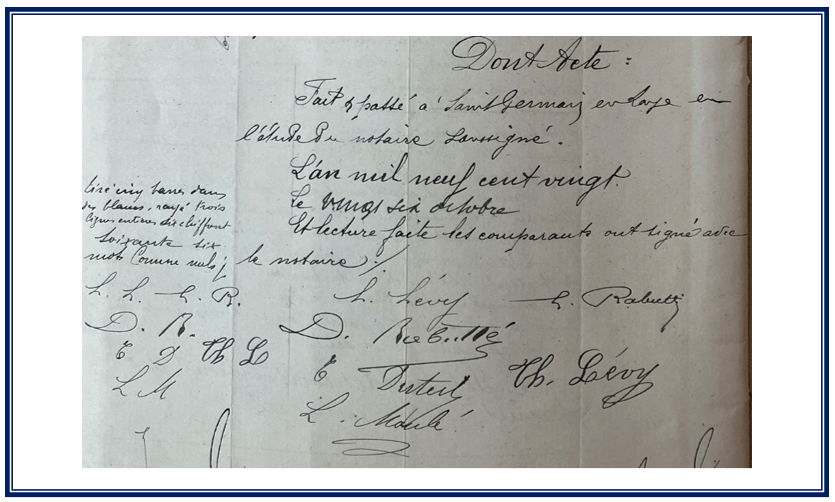 Dont Acte :
Fait & passé à Saint Germain en Laye en
l'étude du notaire soussigné.
L'an mil neuf cent vingt.
Le vingt six octobre
Et lecture faite les comparants ont signé avec
le notaire ./.
tiré cinq barres dans
des blancs, rayé trois
lignes entières dix chiffres
soixante six
mots comme nuls ;
L. L. G. R.
D. R.
E D Th L
L M
L. Lévy G. Rabutté
D. Rabutté
E
Th. Lévy
L.